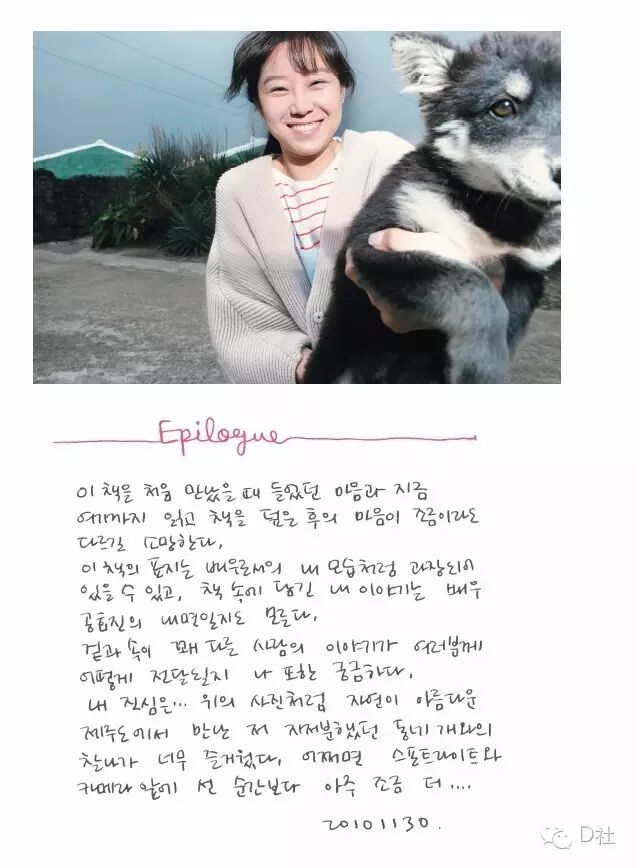 Epilogue
이 책을 처음 만났을 때 들었던 마음과 지금
여기까지 읽고 책을 덮은 후의 마음이 조금이라도
다르길 소망한다.
이 책의 표지는 배우로서의 내 모습처럼 과장되어
있을 수 있고, 책 속에 담긴 내 이야기는 배우
공효진의 내면일지도 모른다.
겉과 속이 꽤 다른 사람의 이야기가 여러분께
어떻게 전달될지 나 또한 궁금하다.
내 진심은... 위의 사진처럼 자연이 아름다운
제주도에서 만난 저 지저분했던 동네 개와의
찰나가 너무 즐거웠다. 어쩌면 스포트라이트와
카메라 앞에 선 순간보다 아주 조금 더....
20101130.
D社